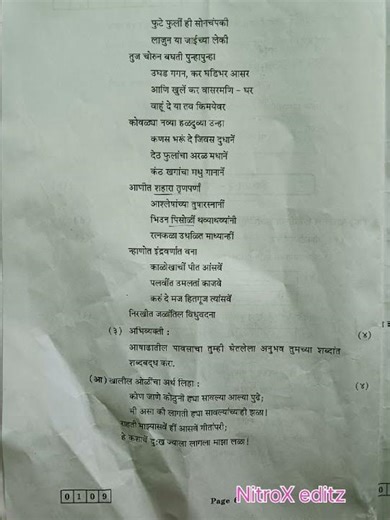 फुटे फुलीं ही सोनचंपकी
लाजुन या जाईच्या लेकी
तुज चोरुन बघती पुन्हापुन्हा
उघड गगन, कर घडिभर आसर
आणि खुलें कर वासरमणि - घर
वाहूं दे या तव किमयेवर
कोवळ्या नव्या हळदुव्या उन्हा
कणस भरूं दे जिवस दुधानें
देठ फुलांचा अरळ मधानें
कंठ खगांचा मधु गानानें
आणीत शहारा तृणपर्णां
आश्लेषांच्या तुषारस्नानीं
भिउन पिसोळीं थव्याथव्यांनी
रत्नकळा उधळित माध्यान्हीं
न्हाणोत इंद्रवर्णांत वना
काळोखाचीं पीत आंसवें
पालवींत उमलतां काजवे
करूं दे मज हितगूज त्यांसवें
निरखीत जळांतिल विधुवदना
(३) अभिव्यक्ती : (४)
आषाढातील पावसाचा तुम्ही घेतलेला अनुभव तुमच्या शब्दांत
शब्दबद्ध करा.
(आ) खालील ओळींचा अर्थ लिहा : (४)
कोण जाणे कोठुनी ह्या सावल्या आल्या पुढे;
मी असा की लागती ह्या सावल्यांच्याही झळा!
राहती माझ्यासवें हीं आसवें गीतांपरी;
हे कशाचें दुःख ज्याला लागला माझा लळा!
0 1 0 9
Page
NitroX editz